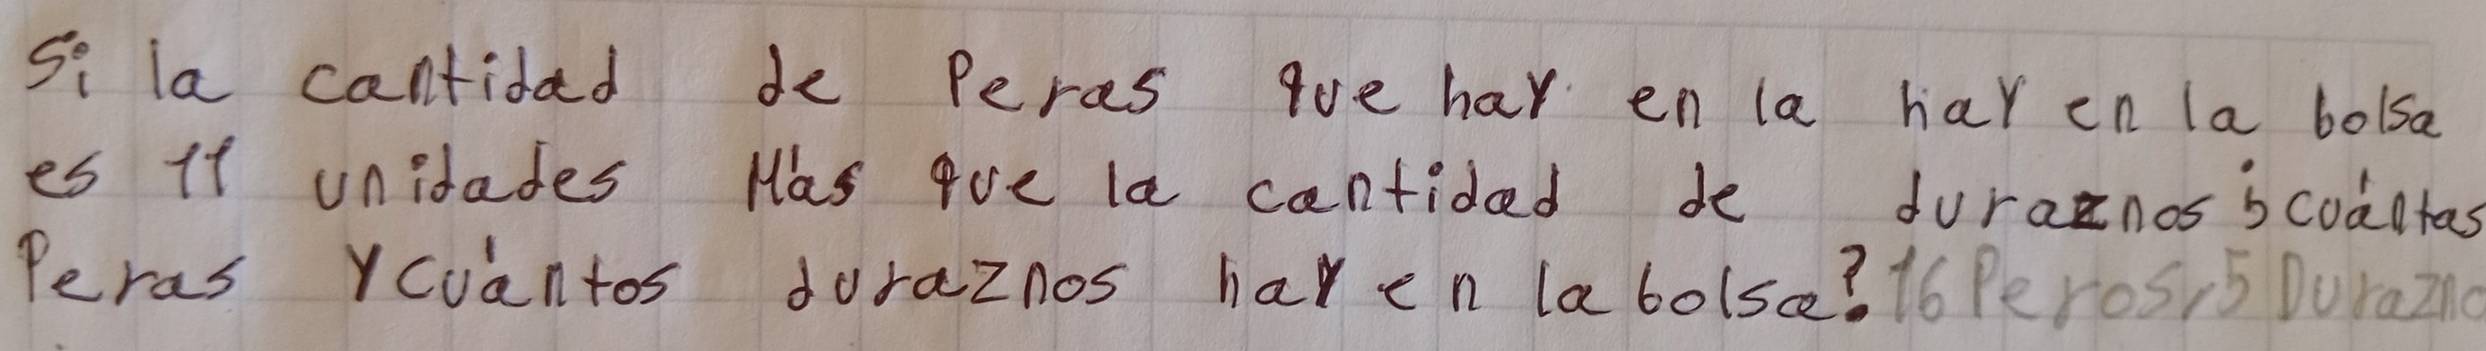 Si la cantidad de Peras que hay en la hay en la bolsa
es 11 unidades Más que la cantidad de duraznos ¿cuántas
Peras y cuántos duraznos hay en la bolsa? 16 Peras, 5 Durazno